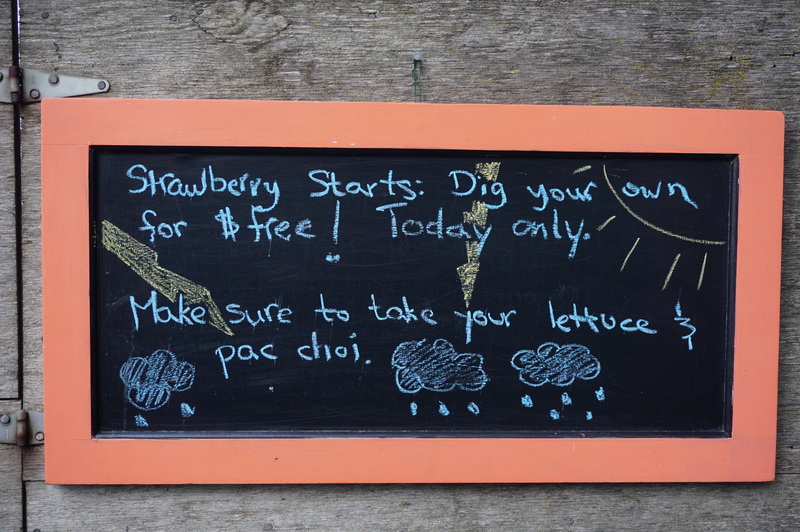 Strawberry Starts: Dig your own
for $ free! Today only.
Make sure to take your lettuce &
pac choi.